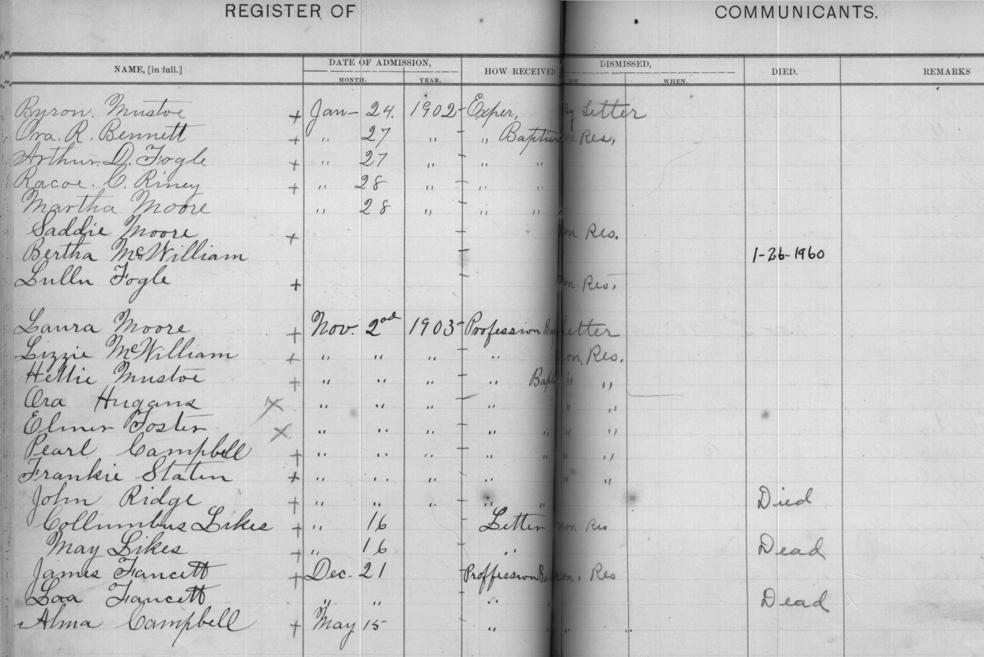 REGISTER OF COMMUNICANTS.
NAME, [in full.] DATE OF ADMISSION, HOW RECEIVED DISMISSED, DIED. REMARKS
MONTH. YEAR. WHEN.
Byron. Mustoe + Jan- 24. 1902 Exper, By Letter
Ora R. Bennett + " 27 " " Baptism Non Res,
Arthur D. Fogle + " 27 " " "
Racoe. C. Riney + " 28 " " "
Martha Moore " 28 " " "
Saddie Moore + Non Res.
Bertha McWilliam 1-26-1960
Lullu Fogle + Non Res.
Laura Moore + Nov. 2nd 1903 Profession Letter
Lizzie McWilliam + " " " " Non Res.
Hettie Mustoe + " " " " Bap " "
Ora Hugans X " " " " " "
Elmer Foster X " " " " " " "
Pearl Campbell + " " " " " "
Frankie Staten + " " " " " "
John Ridge " " " " " Died
Collumbus Likes + " 16 Letter Non Res
May Likes + " 16 " Dead
James Fancett + Dec. 21 Proffession Non. Res
Loa Fancett " " " Dead
Alma Campbell + May 15 " "